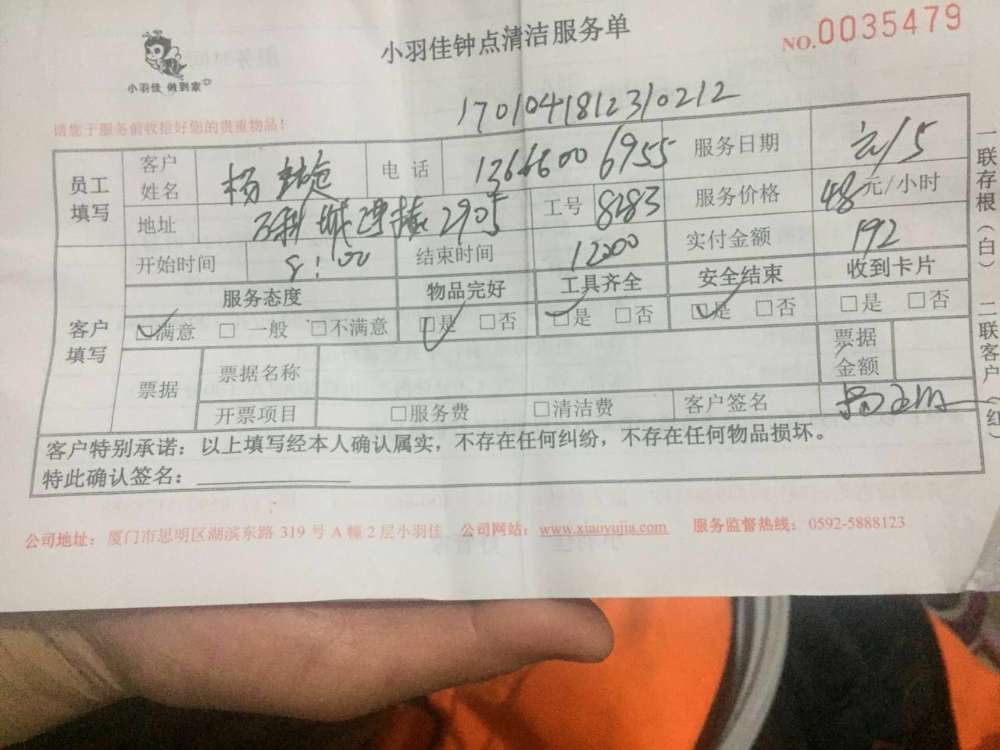 小羽佳 做到家
小羽佳钟点清洁服务单
NO.0035479
1701041812310212
请您于服务前收拾好您的贵重物品!
员工填写 客户姓名 杨 电话 13666006955 服务日期
地址 2905 工号 8283 服务价格 48元/小时
客户填写 开始时间 8:00 结束时间 1200 实付金额 192
服务态度 物品完好 工具齐全 安全结束 收到卡片
☑满意 □ 一般 □不满意 ☑是 □否 ☑是 □否 ☑是 □否 □是 □否
票据 票据名称 票据金额
开票项目 □服务费 □清洁费 客户签名
客户特别承诺：以上填写经本人确认属实，不存在任何纠纷，不存在任何物品损坏。
特此确认签名：
公司地址：厦门市思明区湖滨东路 319 号 A 幢 2 层小羽佳 公司网站：www.xiaoyujia.com 服务监督热线：0592-5888123
一联存根（白） 二联客户（红